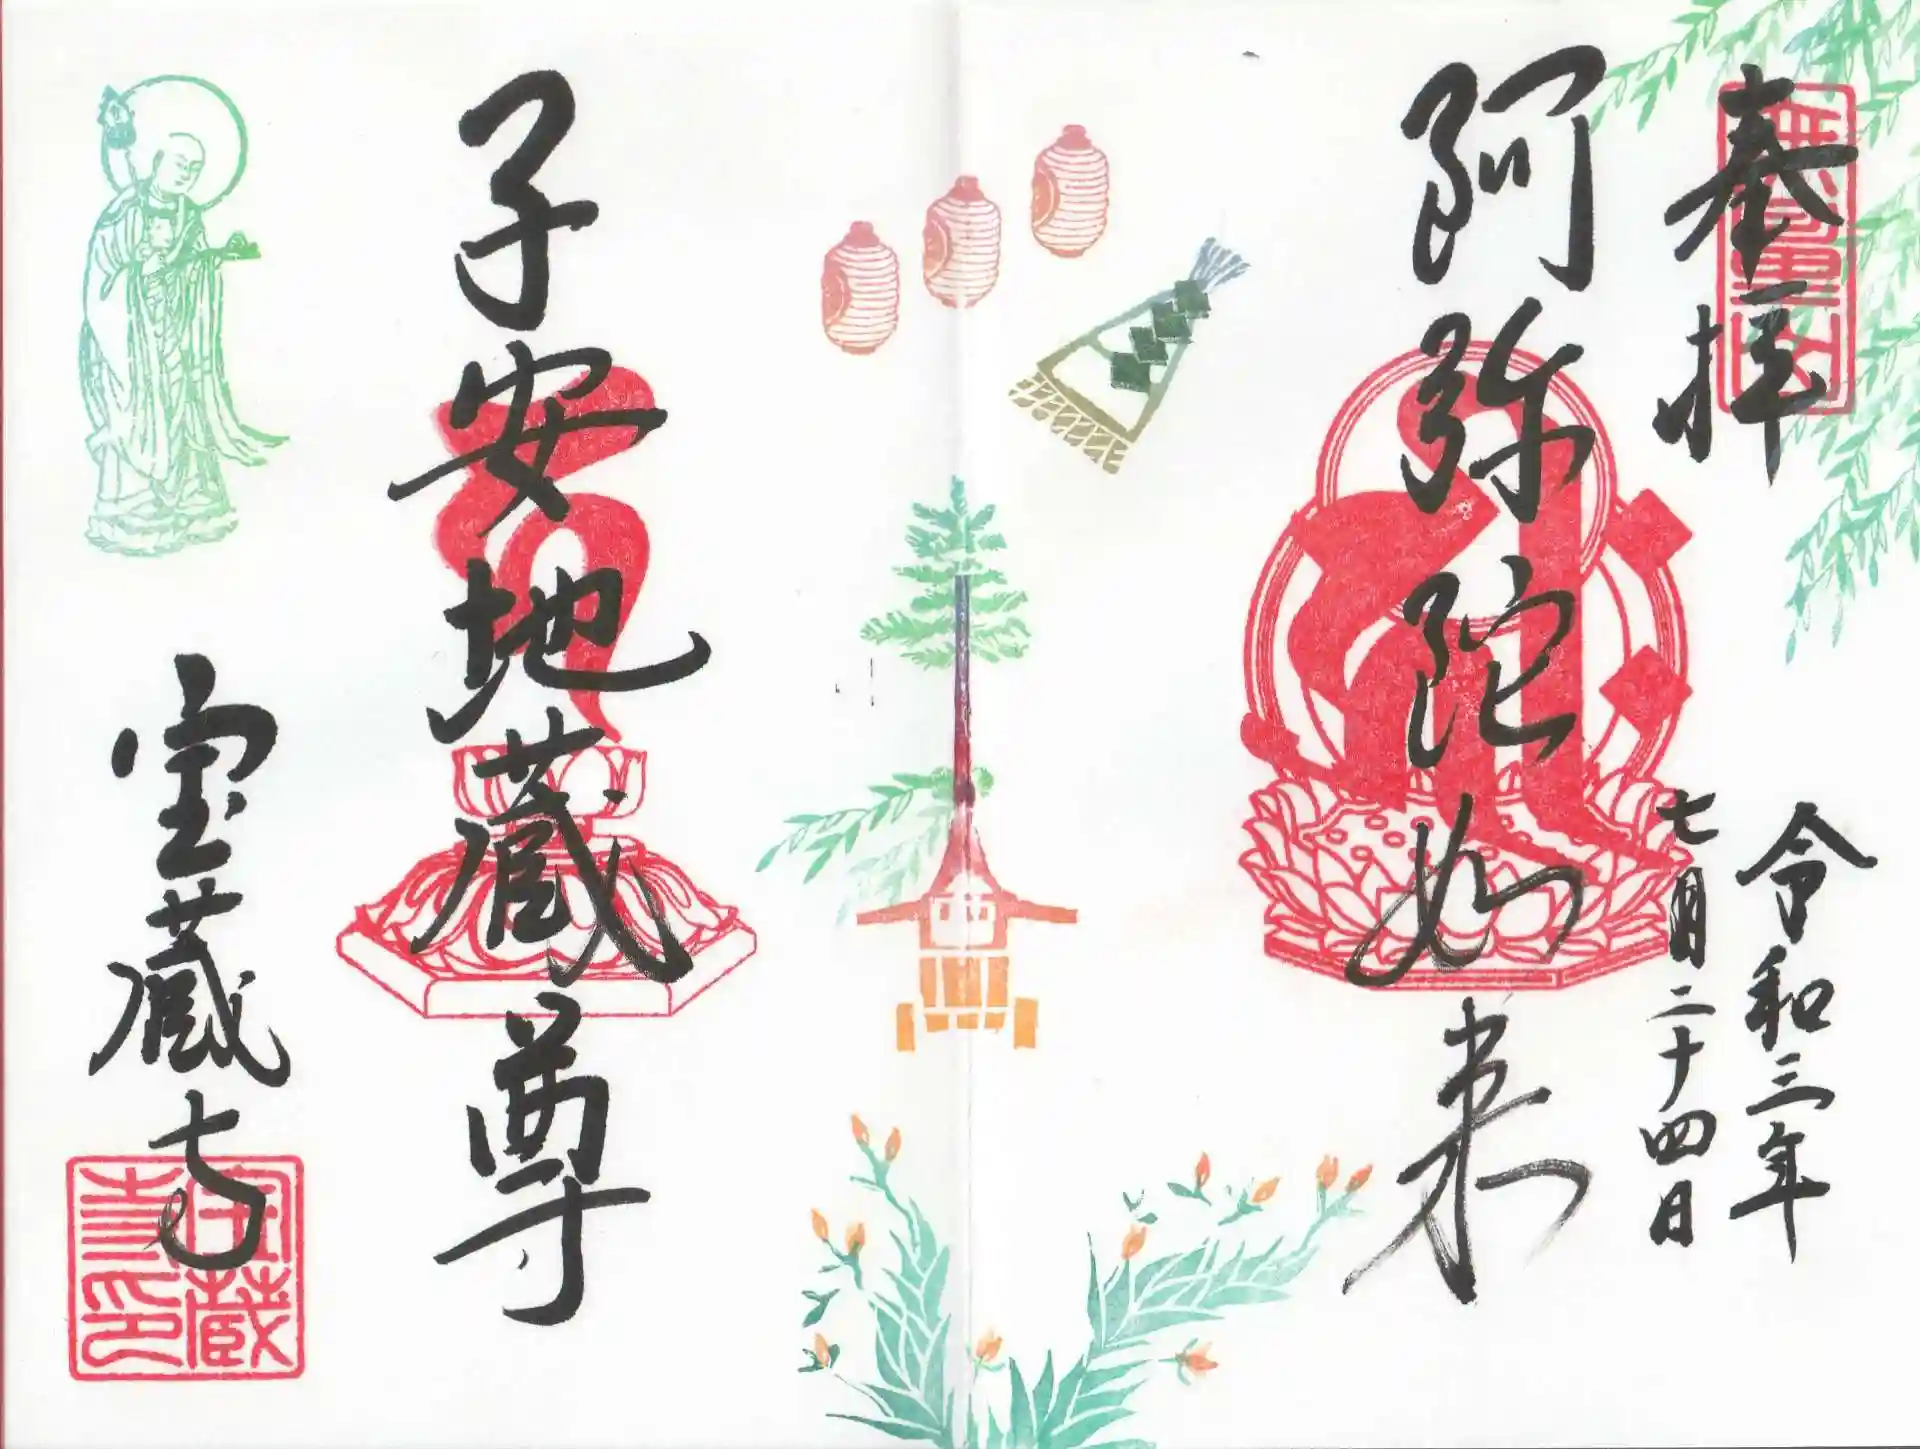 奉拝
無量山
令和三年
七月二十四日
阿弥陀如来
子安地蔵尊
宝蔵寺
宝蔵寺印